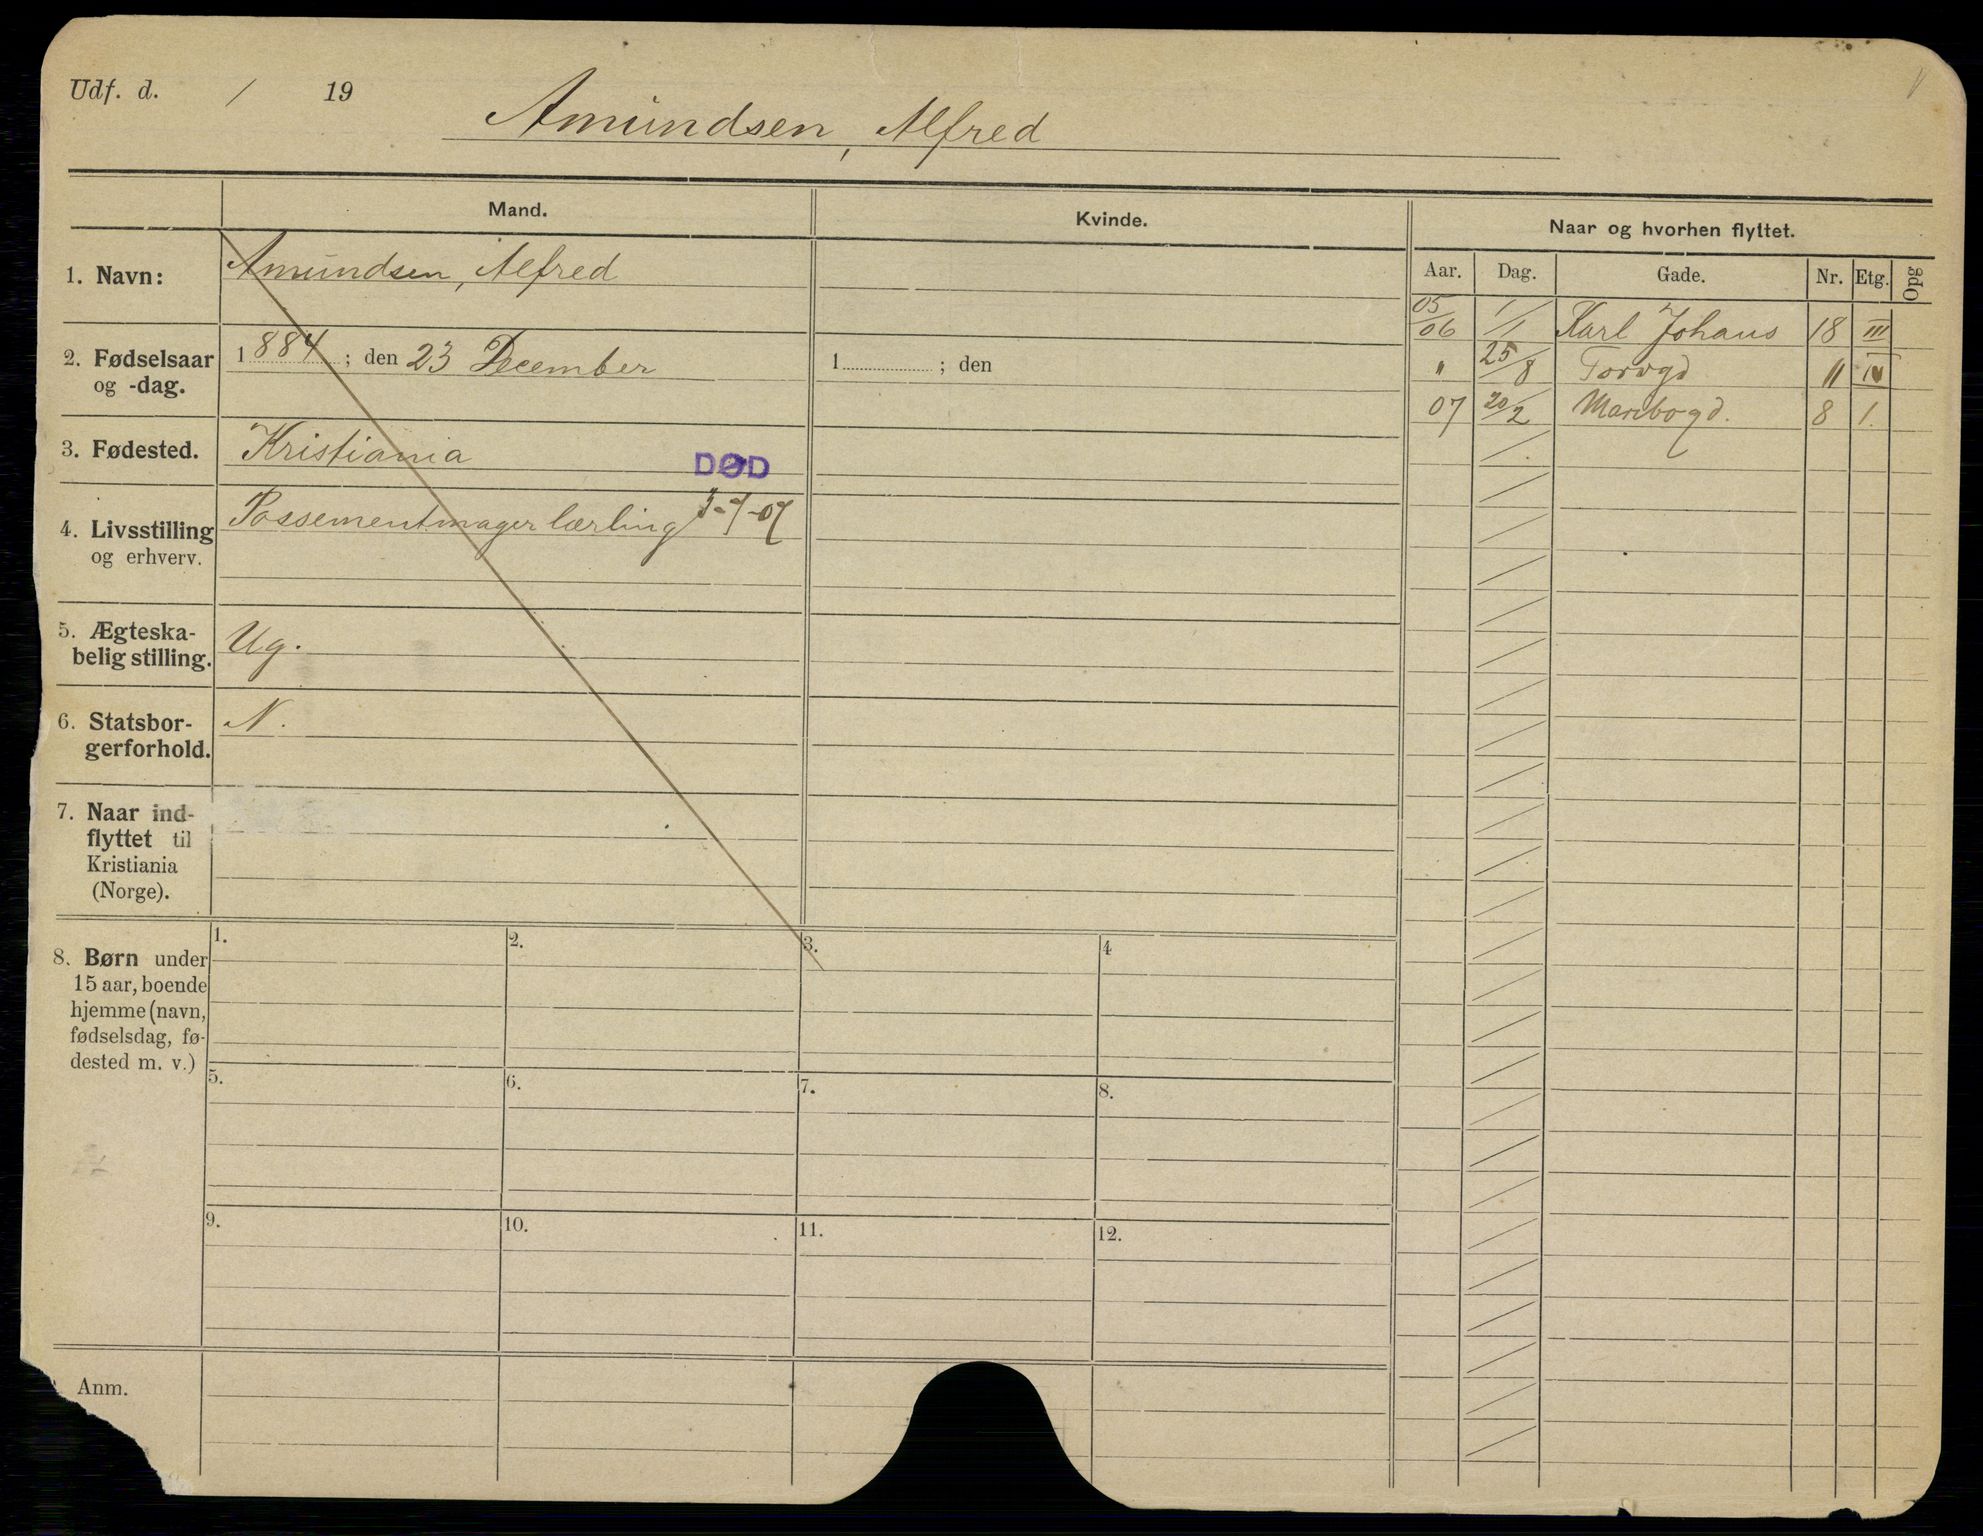 Udf. d. / 19
Amundsen, Alfred
Mand.
Kvinde.
Naar og hvorhen flyttet.
Aar. Dag. Gade. Nr. Etg. Opg
1. Navn: Amundsen, Alfred
05/06 1/1 Karl Johans 18 III
2. Fødselsaar og -dag. 1884; den 23 December
1 ; den
" 25/8 Torvgd 11 IV
07 20/2 Maribogd. 8 1.
3. Fødested. Kristiania
DØD
3-7-07
4. Livsstilling og erhverv. Possementmager lærling
5. Ægteska-
belig stilling. Ug.
6. Statsbor-
gerforhold. N.
7. Naar ind-
flyttet til
Kristiania
(Norge).
8. Børn under
15 aar, boende
hjemme (navn,
fødselsdag, fø-
dested m. v.)
1. 2. 3. 4
5. 6. 7. 8.
9. 10. 11. 12.
Anm.